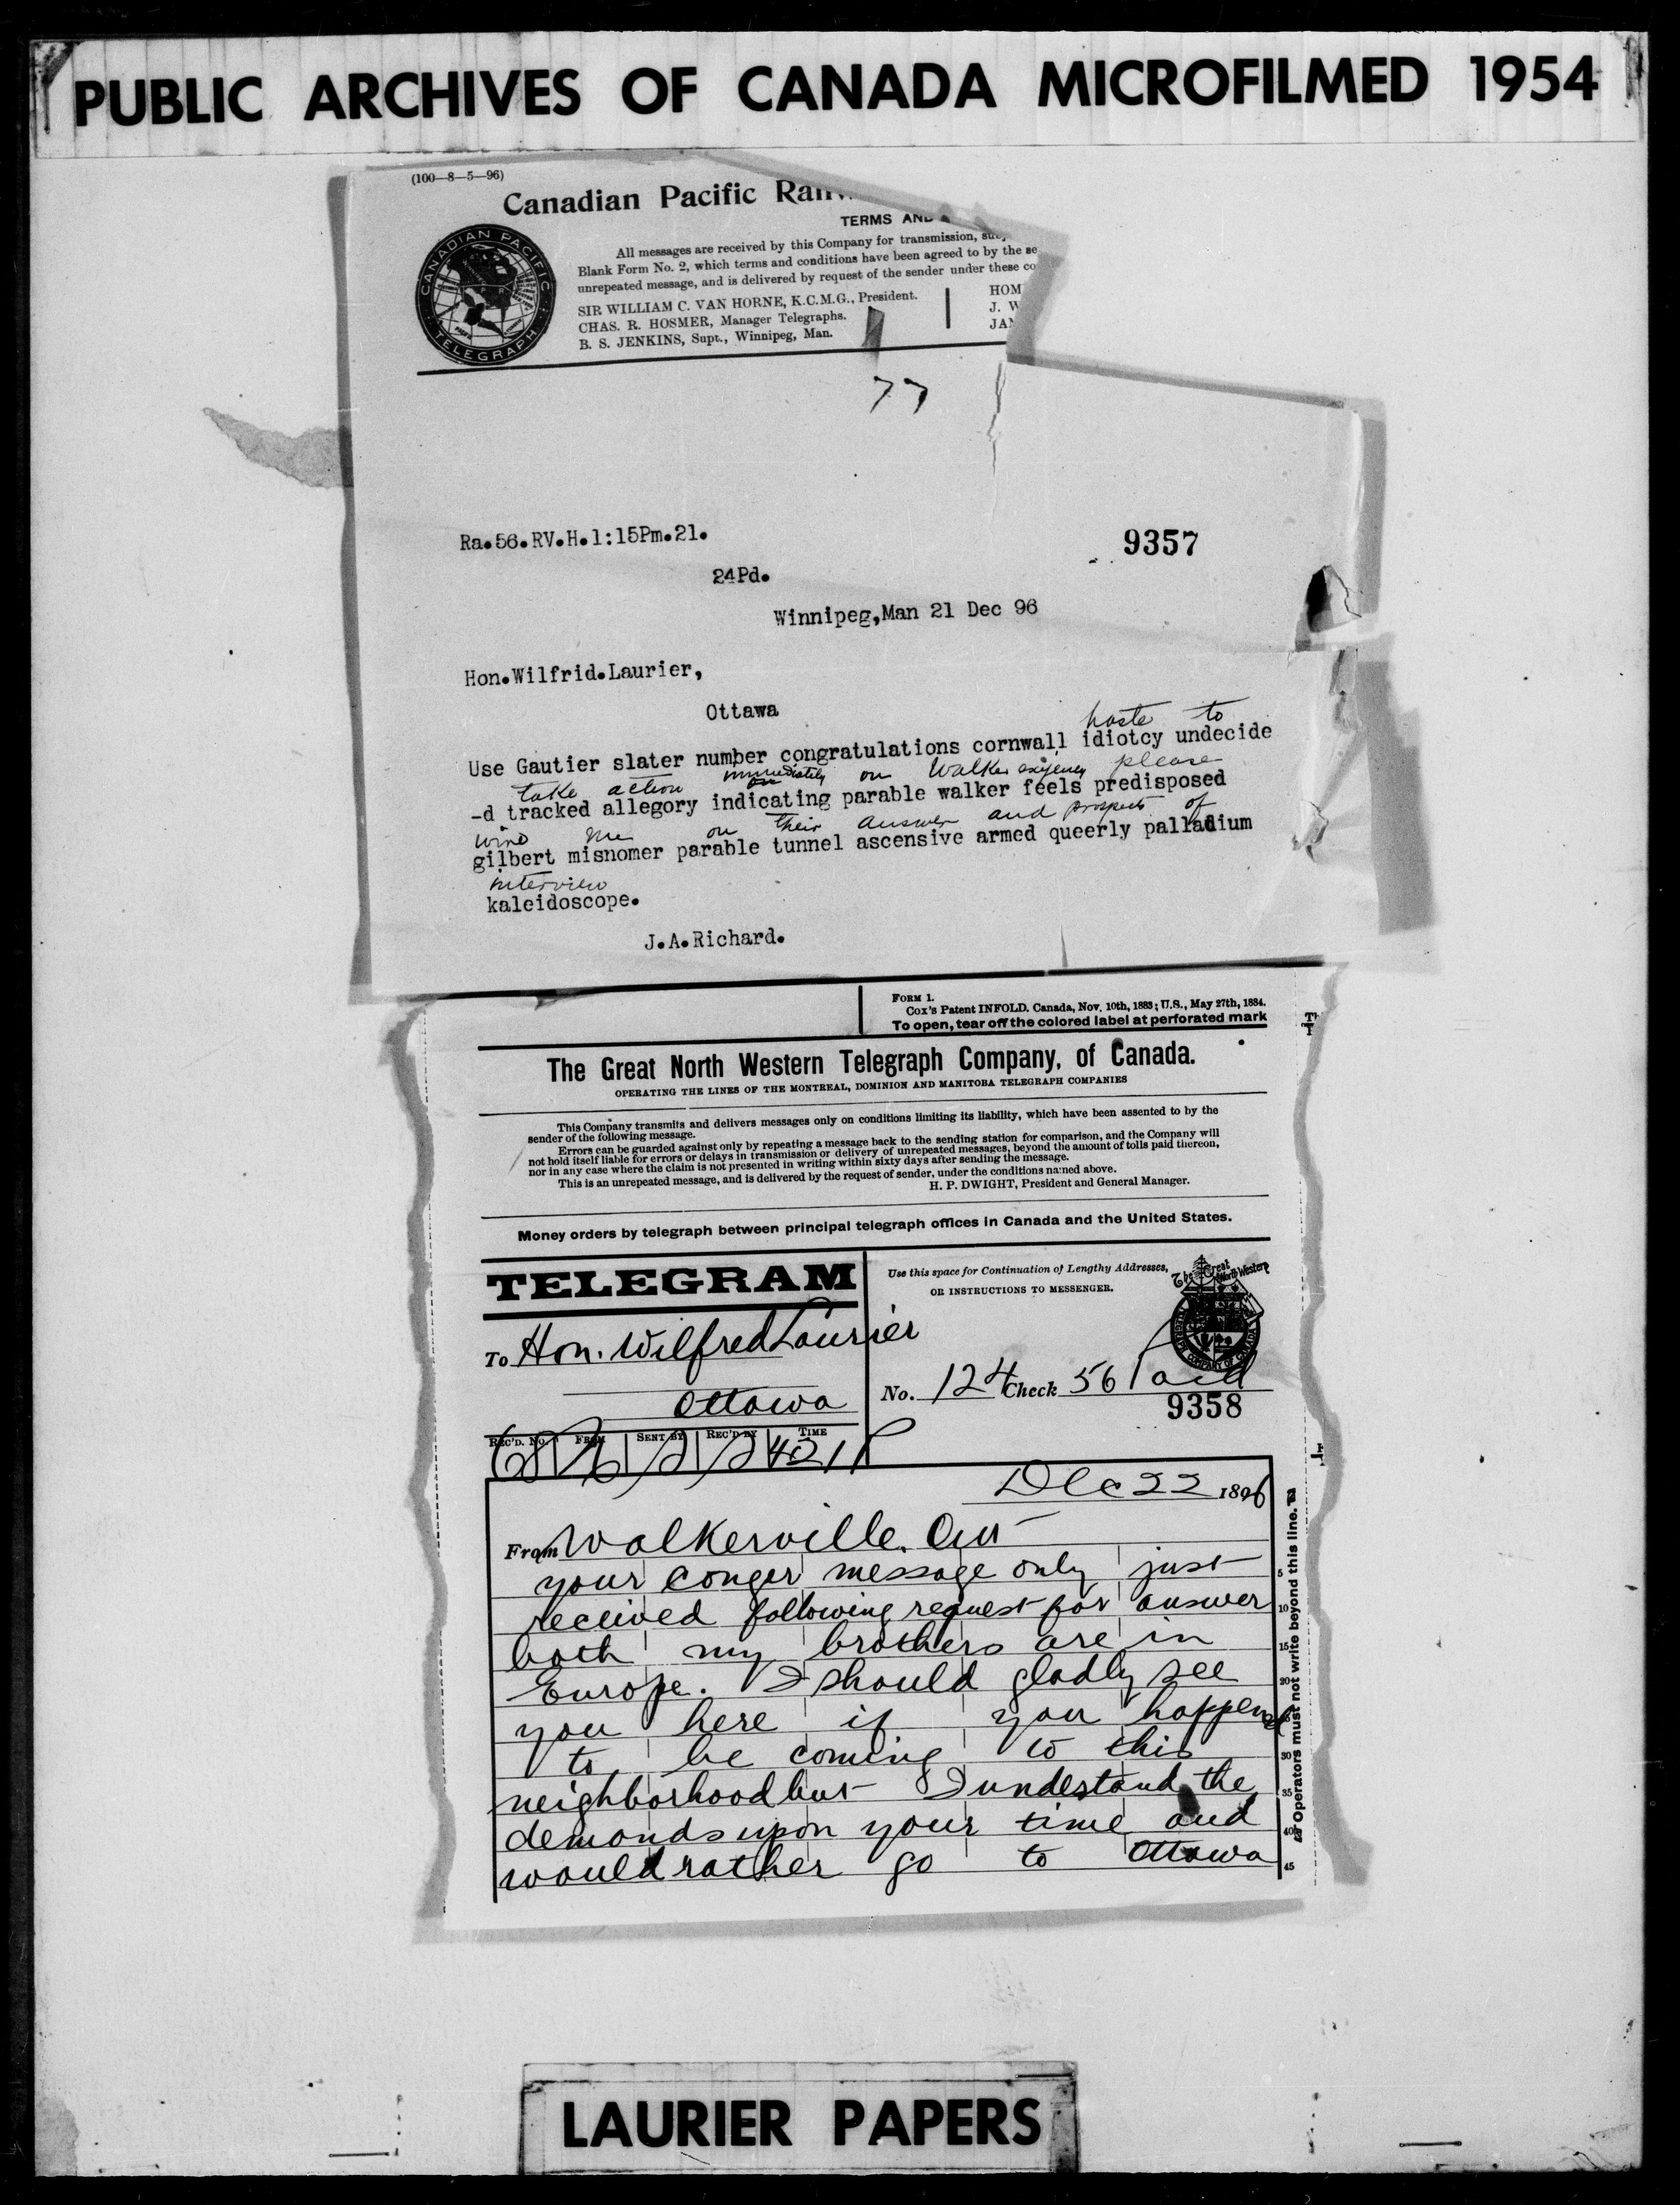 PUBLIC ARCHIVES OF CANADA MICROFILMED 1954
(100—8—5—96)
Canadian Pacific Rail
TERMS AND
All messages are received by this Company for transmission,
Blank Form No. 2, which terms and conditions have been agreed to by the se
unrepeated message, and is delivered by request of the sender under these co
SIR WILLIAM C. VAN HORNE, K.C.M.G., President.
CHAS. R. HOSMER, Manager Telegraphs.
B. S. JENKINS, Supt., Winnipeg, Man.
HOM
J. W
JAN
CANADIAN PACIFIC TELEGRAPH
77
Ra.56.RV.H.1:15Pm.21.
9357
24Pd.
Winnipeg,Man 21 Dec 96
Hon.Wilfrid.Laurier,
Ottawa
haste to
Use Gautier slater number congratulations cornwall idiotcy undecide
take action immediately on Walker exigency please
-d tracked allegory indicating parable walker feels predisposed
wire me on their answer and prospects of
gilbert misnomer parable tunnel ascensive armed queerly palladium
interview
kaleidoscope.
J.A.Richard.
FORM 1.
Cox's Patent INFOLD. Canada, Nov. 10th, 1883; U.S., May 27th, 1884.
To open, tear off the colored label at perforated mark
The Great North Western Telegraph Company, of Canada.
OPERATING THE LINES OF THE MONTREAL, DOMINION AND MANITOBA TELEGRAPH COMPANIES
This Company transmits and delivers messages only on conditions limiting its liability, which have been assented to by the
sender of the following message.
Errors can be guarded against only by repeating a message back to the sending station for comparison, and the Company will
not hold itself liable for errors or delays in transmission or delivery of unrepeated messages, beyond the amount of tolls paid thereon,
nor in any case where the claim is not presented in writing within sixty days after sending the message.
This is an unrepeated message, and is delivered by the request of sender, under the conditions named above.
H. P. DWIGHT, President and General Manager.
Money orders by telegraph between principal telegraph offices in Canada and the United States.
TELEGRAM
Use this space for Continuation of Lengthy Addresses,
OR INSTRUCTIONS TO MESSENGER.
The Great North Western
To Hon. Wilfred Laurier
Ottawa
No. 124 Check 56 Paid
9358
REC'D. NO. FROM SENT BY REC'D BY TIME
Dec 22 1896
From Walkerville. Ont
your conger message only just
received following request for answer
both my brothers are in
Europe. I should gladly see
you here if you happened
to be coming to this
neighborhood but I understand the
demands upon your time and
would rather go to Ottawa
5
10
15
20
30
35
40
45
Operators must not write beyond this line.
LAURIER PAPERS